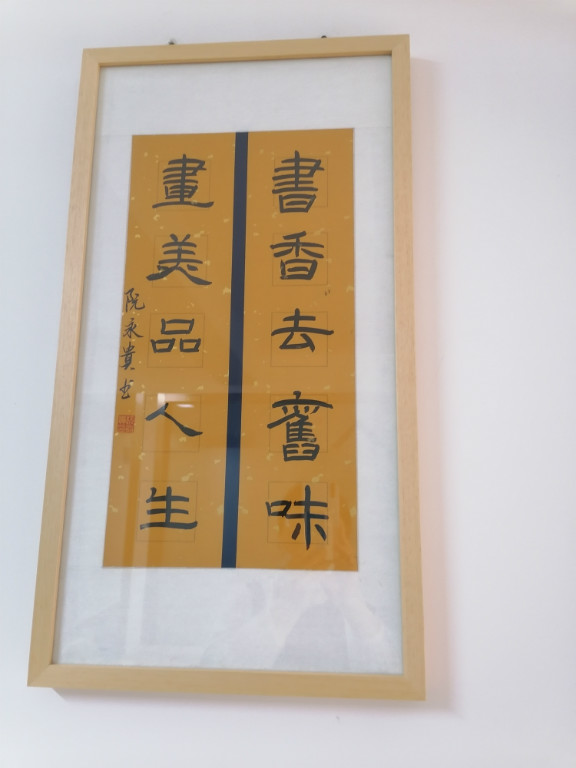 書香去舊味
畫美品人生
阮永貴书